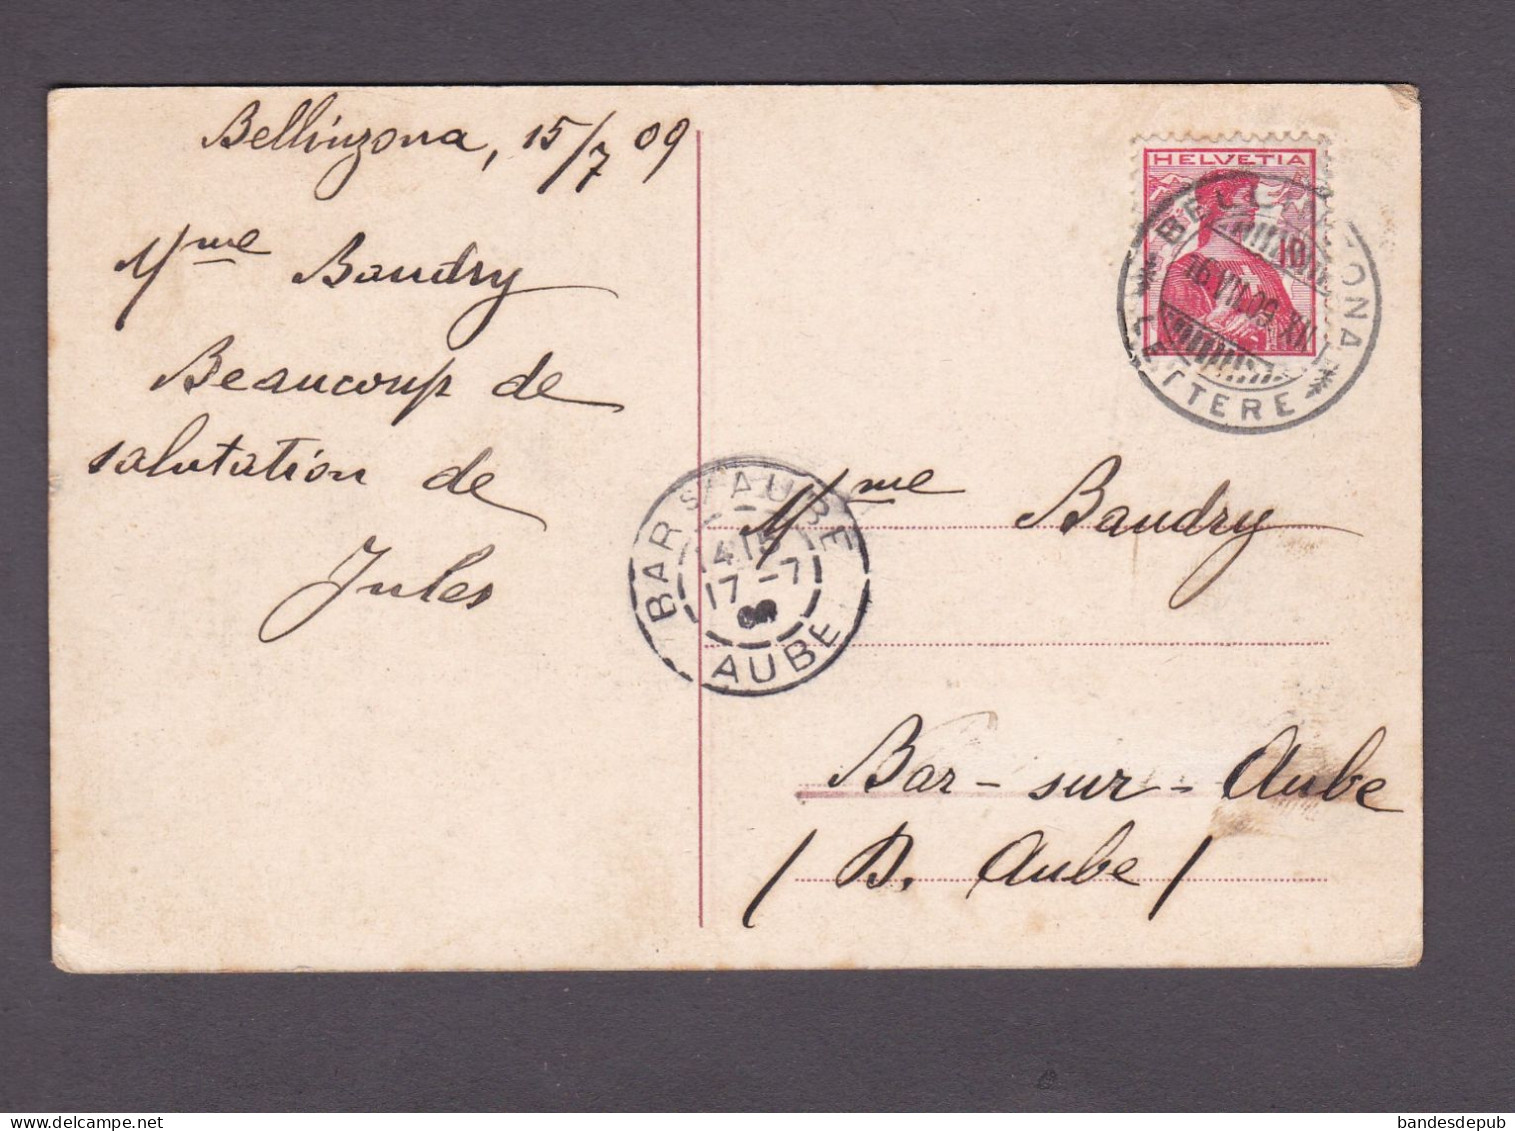 Bellinzona, 15/7 09
Mme Baudry
Beaucoup de
salutation de
Jules
HELVETIA
10
BELLINZONA
16.VII.09.XII
LETTERE
BAR S/AUBE
4 15
17-7
09
AUBE
Mme Baudry
Bar-sur-Aube
(D. Aube)
bandesdepub